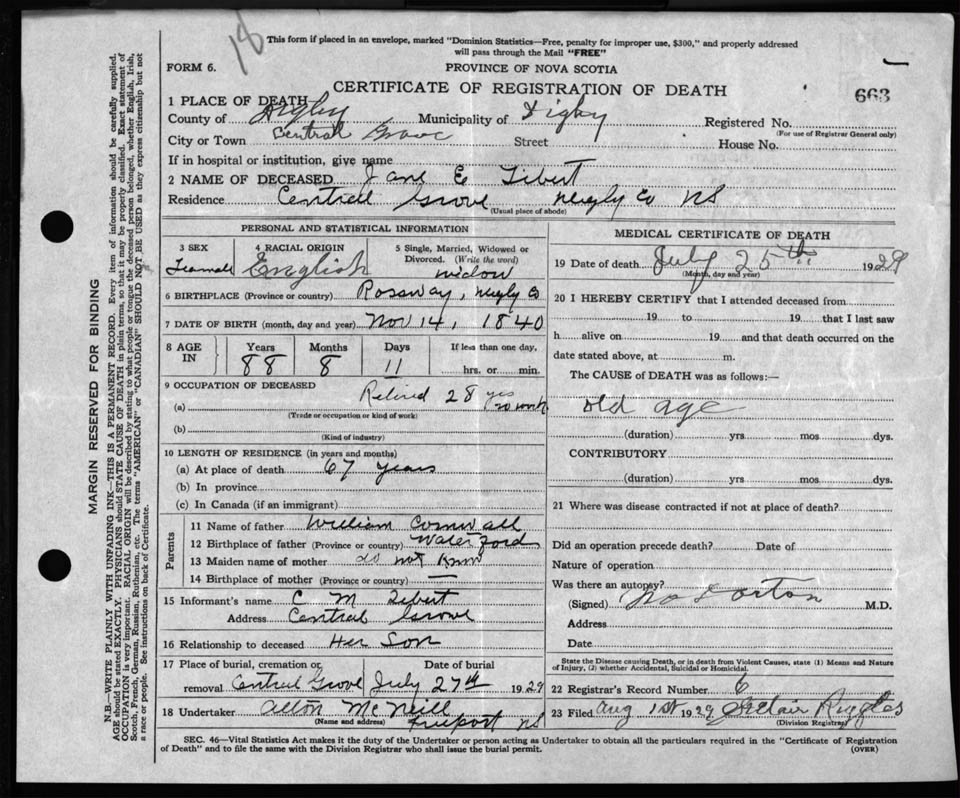 18
This form if placed in an envelope, marked "Dominion Statistics—Free, penalty for improper use, $300," and properly addressed
will pass through the Mail "FREE"
FORM 6.
PROVINCE OF NOVA SCOTIA
CERTIFICATE OF REGISTRATION OF DEATH
663
1 PLACE OF DEATH
County of Digby Municipality of Digby Registered No.
(For use of Registrar General only)
City or Town Central Grove Street House No.
If in hospital or institution, give name
2 NAME OF DECEASED Jane E Tibert
Residence Centrall Grove Co NS
(Usual place of abode)
PERSONAL AND STATISTICAL INFORMATION
3 SEX 4 RACIAL ORIGIN 5 Single, Married, Widowed or
Divorced. (Write the word)
Feamale English widow
6 BIRTHPLACE (Province or country) Rossway, Co
7 DATE OF BIRTH (month, day and year) Nov 14, 1840
8 AGE IN Years Months Days If less than one day,
88 8 11 hrs. or min.
9 OCCUPATION OF DECEASED
(a) Retired 28 yrs no work
(Trade or occupation or kind of work)
(b)
(Kind of industry)
10 LENGTH OF RESIDENCE (in years and months)
(a) At place of death 67 years
(b) In province
(c) In Canada (if an immigrant)
Parents
11 Name of father William Cornwall
12 Birthplace of father (Province or country) Waterford
13 Maiden name of mother do not know
14 Birthplace of mother (Province or country) —
15 Informant's name C M Tibert
Address Central Grove
16 Relationship to deceased Her Son
17 Place of burial, cremation or Date of burial
removal Central Grove July 27th 1929
18 Undertaker Alton McNeill
(Name and address) Freeport NS
MEDICAL CERTIFICATE OF DEATH
19 Date of death July 25th 1929
(Month, day and year)
20 I HEREBY CERTIFY that I attended deceased from
19 to 19 that I last saw
h alive on 19 and that death occurred on the
date stated above, at m.
The CAUSE of DEATH was as follows:—
old age
(duration) yrs mos dys.
CONTRIBUTORY
(duration) yrs mos dys.
21 Where was disease contracted if not at place of death?
Did an operation precede death? Date of
Nature of operation
Was there an autopsy?
(Signed) no Dorton M.D.
Address
Date
State the Disease causing Death, or in death from Violent Causes, state (1) Means and Nature
of Injury, (2) whether Accidental, Suicidal or Homicidal.
22 Registrar's Record Number 6
23 Filed Aug 1st 1929 Sinclair Ruggles
(Division Registrar)
SEC. 46—Vital Statistics Act makes it the duty of the Undertaker or person acting as Undertaker to obtain all the particulars required in the "Certificate of Registration
of Death" and to file the same with the Division Registrar who shall issue the burial permit.
(OVER)
MARGIN RESERVED FOR BINDING
N.B.—WRITE PLAINLY WITH UNFADING INK—THIS IS A PERMANENT RECORD. Every item of information should be carefully supplied.
AGE should be stated EXACTLY. PHYSICIANS should STATE CAUSE OF DEATH in plain terms, so that it may be properly classified. Exact statement of
OCCUPATION is very important. RACIAL ORIGIN will be described by stating to what people or tongue the deceased person belonged, whether English, Irish,
Scotch, French, German, Russian, Ruthenian, etc. The terms "AMERICAN" or "CANADIAN" SHOULD NOT BE USED as they express citizenship but not
a race or people. See instructions on back of Certificate.